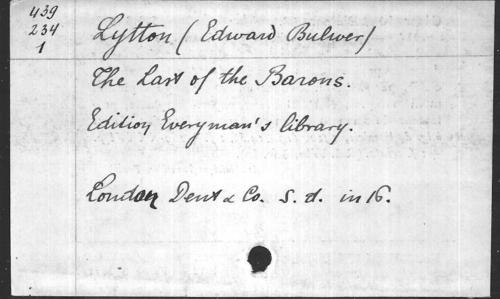 439
234
1
Lytton (Edward Bulwer)
The Last of the Barons.
Edition Everyman's library.
London Dent & Co. s. d. in 16.